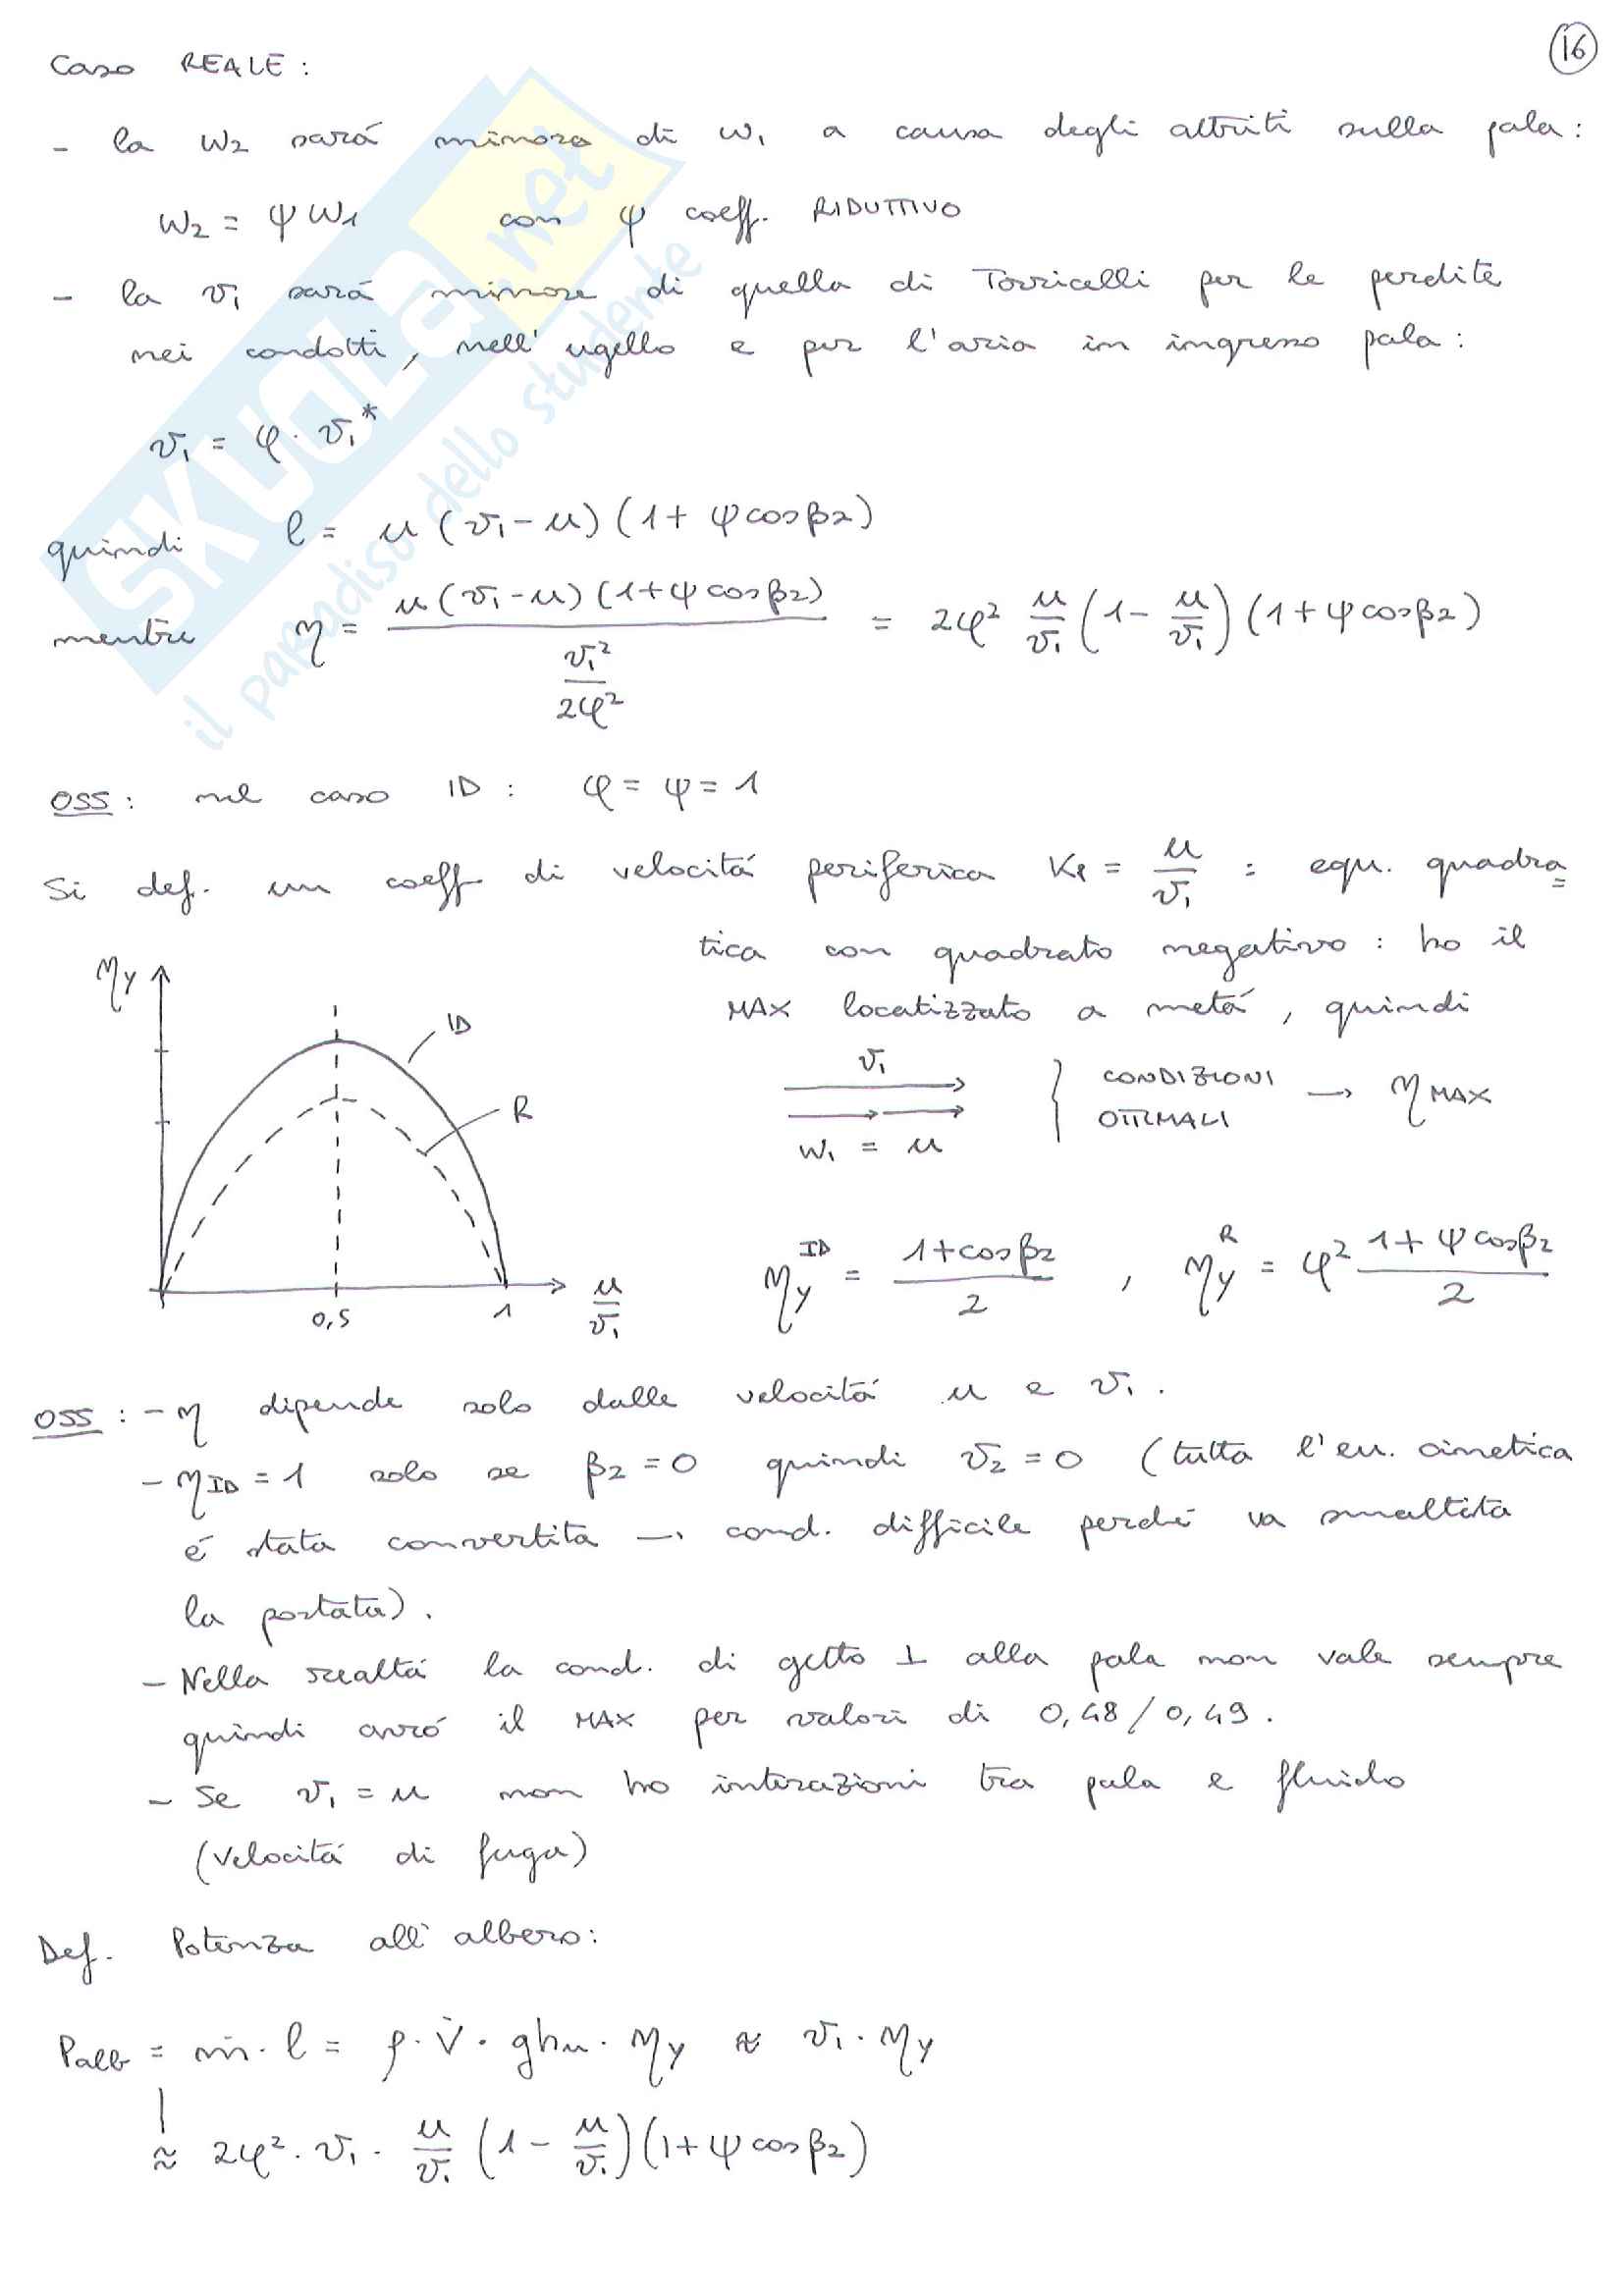 16
Caso REALE:
- la w₂ sará minore di w₁ a causa degli attriti sulla pala:
w₂ = ψ w₁ con ψ coeff. RIDUTTIVO
- la v₁ sará minore di quella di Torricelli per le perdite
nei condotti, nell'ugello e per l'aria in ingresso pala:
v₁ = φ · v₁*
quindi l = u (v₁ - u) (1 + ψ cosβ₂)
mentre η = u (v₁ - u) (1 + ψ cosβ₂) / (v₁² / 2φ²) = 2φ² u/v₁ (1 - u/v₁) (1 + ψ cosβ₂)
OSS: nel caso ID: φ = ψ = 1
Si def. un coeff di velocitá periferica Kp = u/v₁ : equ. quadra=
tica con quadrato negativo: ho il
MAX locatizzato a metá, quindi
ηy
ID
R
0,5
1
u/v₁
v₁
w₁ = u
} CONDIZIONI
OTTIMALI → η MAX
ηy^ID = (1 + cosβ₂)/2 , ηy^R = φ² (1 + ψ cosβ₂)/2
OSS: - η dipende solo dalle velocitá u e v₁.
- η ID = 1 solo se β₂ = 0 quindi v₂ = 0 (tutta l'en. cinetica
é stata convertita → cond. difficile perché va smaltita
la portata).
- Nella realtá la cond. di getto ⊥ alla pala non vale sempre
quindi avró il MAX per valori di 0,48 / 0,49.
- Se v₁ = u non ho interazioni tra pala e fluido
(velocitá di fuga)
Def. Potenza all'albero:
Palb = ṁ · l = ρ · V̇ · ghu · ηy ≈ v₁ · ηy
≈ 2φ² · v₁ · u/v₁ (1 - u/v₁) (1 + ψ cosβ₂)
SKUOLA.net
il paradiso dello studente